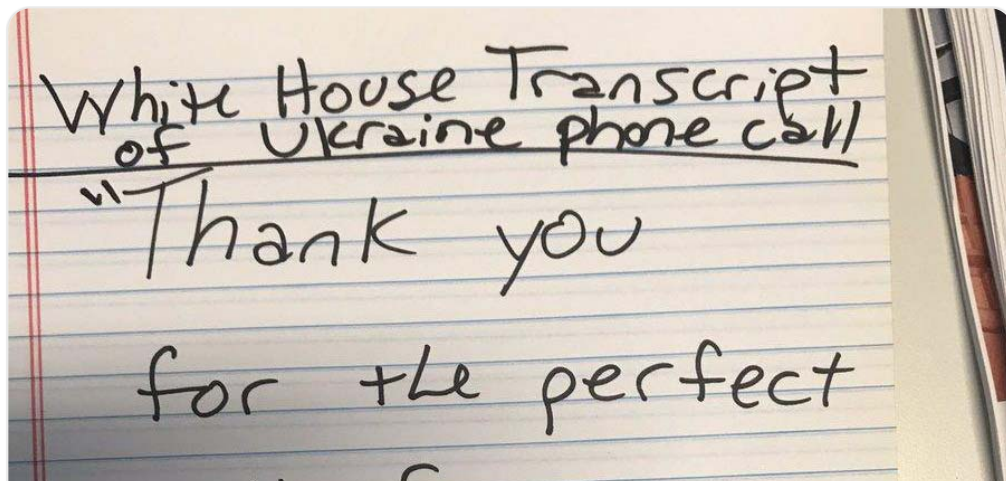 White House Transcript
of Ukraine phone call
"Thank you
for the perfect